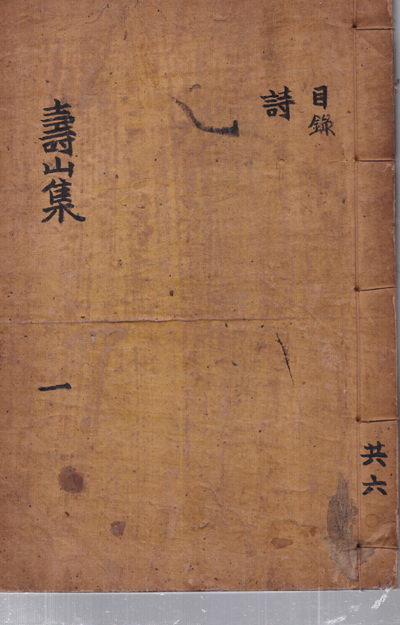 目錄
詩
壽山集
一
共六